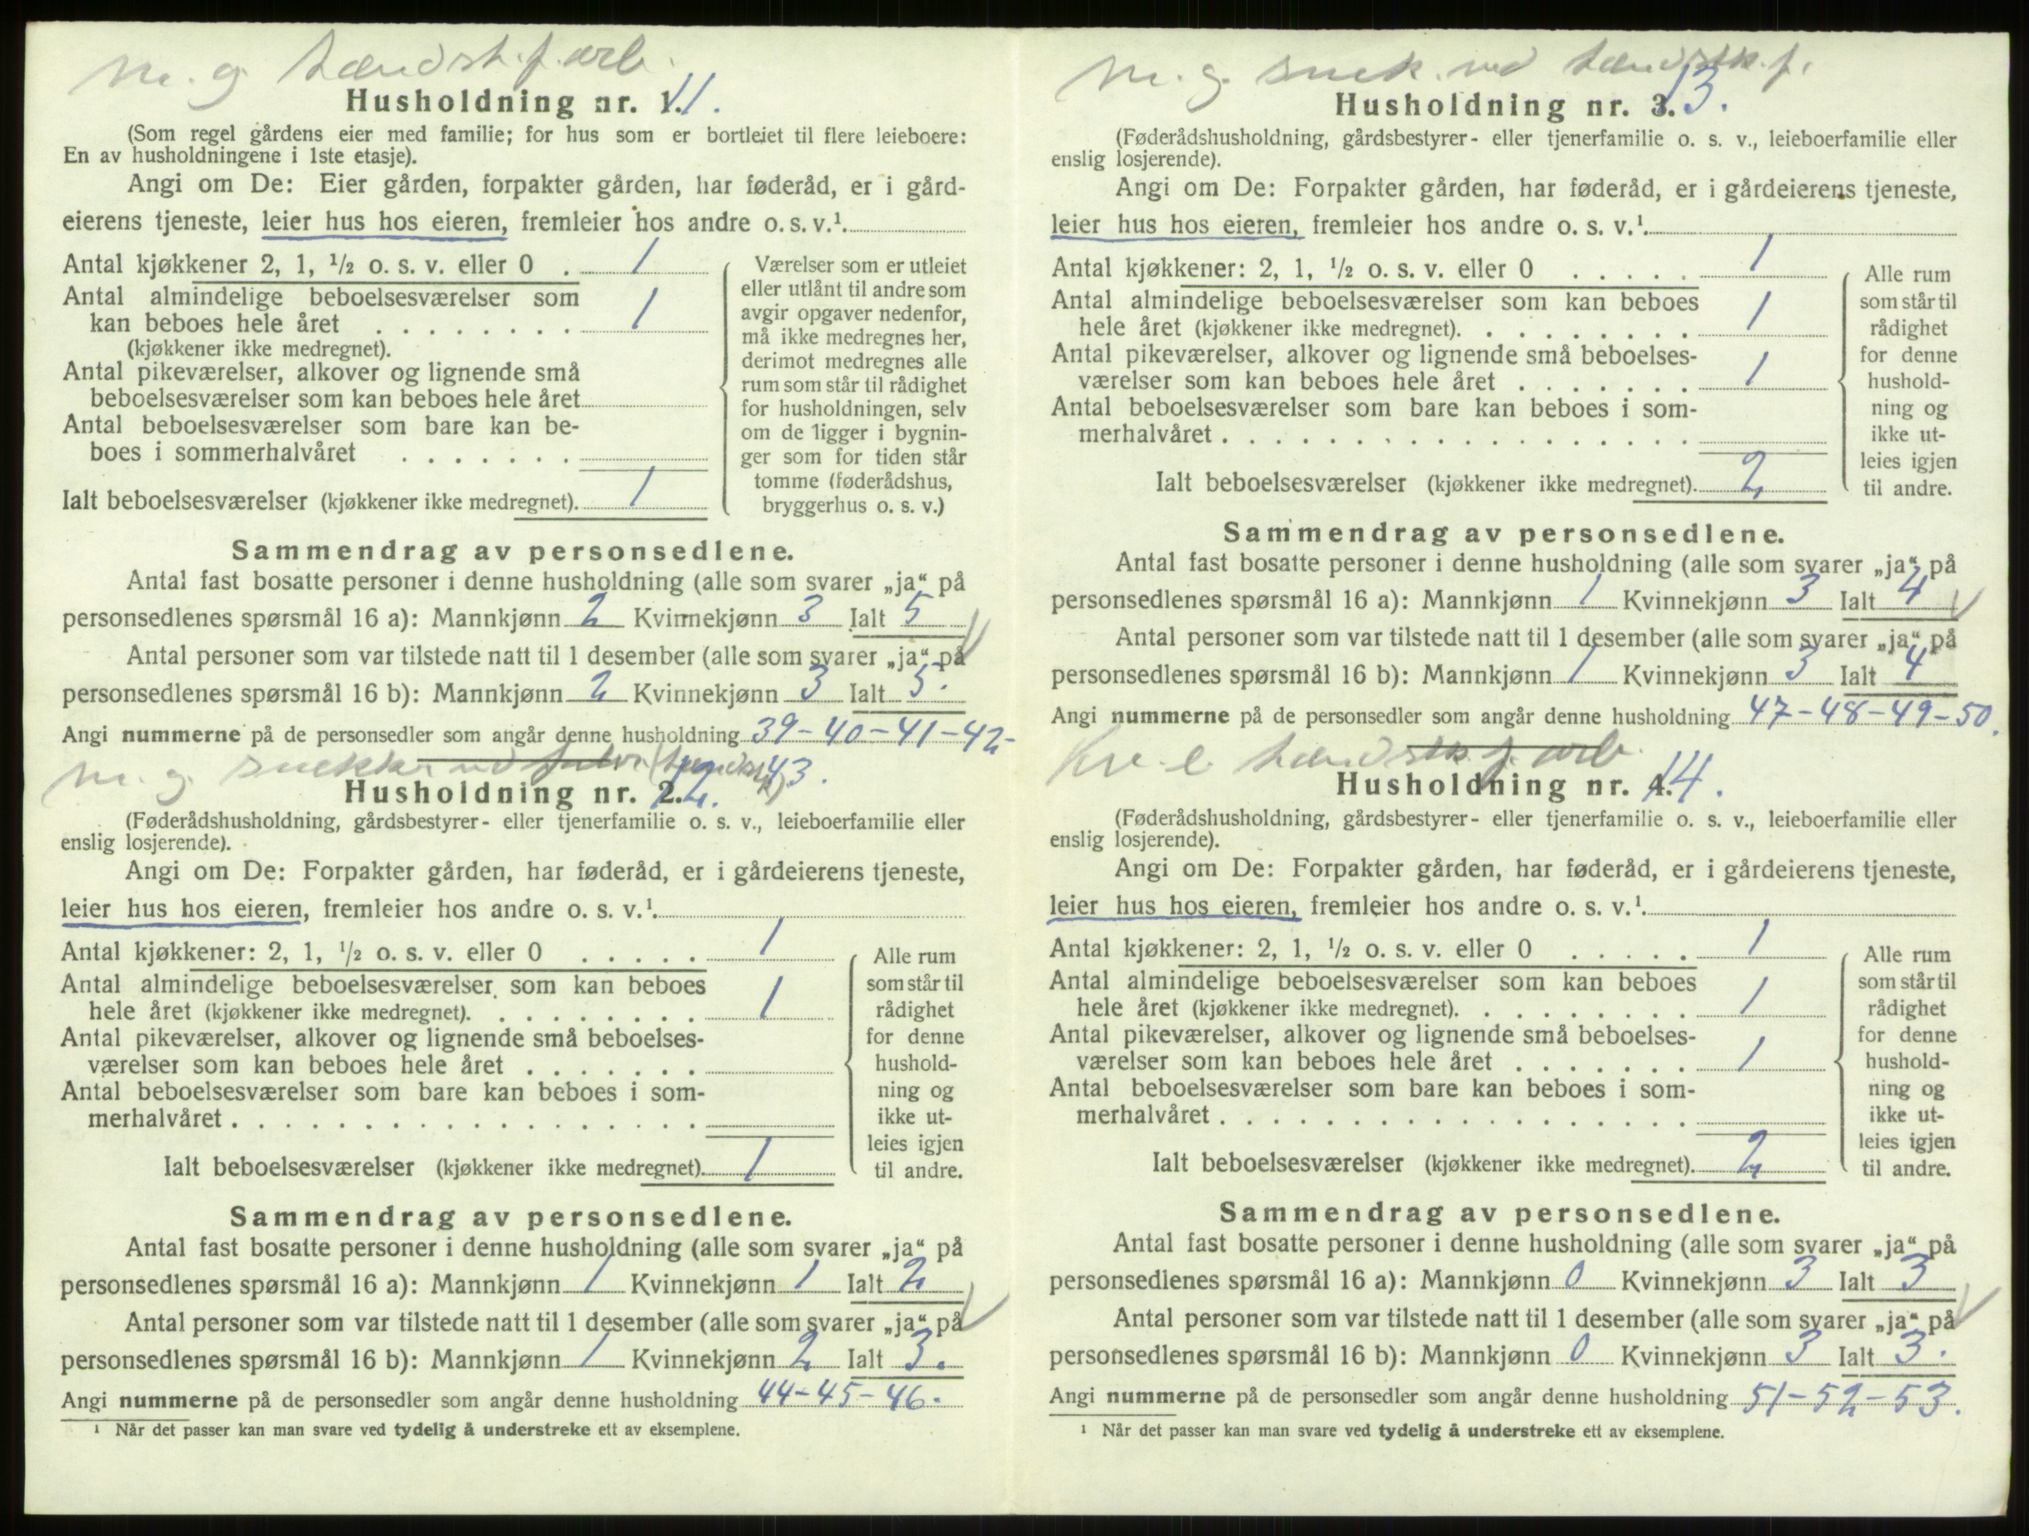 m. g. tændst.f.arb.
Husholdning nr. 11.
(Som regel gårdens eier med familie; for hus som er bortleiet til flere leieboere:
En av husholdningene i 1ste etasje).
Angi om De: Eier gården, forpakter gården, har føderåd, er i gård-
eierens tjeneste, leier hus hos eieren, fremleier hos andre o. s. v.¹
Antal kjøkkener 2, 1, ½ o. s. v. eller 0 . 1
Antal almindelige beboelsesværelser som
kan beboes hele året . . . . . . . . 1
(kjøkkener ikke medregnet).
Antal pikeværelser, alkover og lignende små
beboelsesværelser som kan beboes hele året
Antal beboelsesværelser som bare kan be-
boes i sommerhalvåret . . . . . . .
Ialt beboelsesværelser (kjøkkener ikke medregnet). 1
Værelser som er utleiet
eller utlånt til andre som
avgir opgaver nedenfor,
må ikke medregnes her,
derimot medregnes alle
rum som står til rådighet
for husholdningen, selv
om de ligger i bygnin-
ger som for tiden står
tomme (føderådshus,
bryggerhus o. s. v.)
Sammendrag av personsedlene.
Antal fast bosatte personer i denne husholdning (alle som svarer „ja“ på
personsedlenes spørsmål 16 a): Mannkjønn 2 Kvinnekjønn 3 Ialt 5
Antal personer som var tilstede natt til 1 desember (alle som svarer „ja“ på
personsedlenes spørsmål 16 b): Mannkjønn 2 Kvinnekjønn 3 Ialt 5.
Angi nummerne på de personsedler som angår denne husholdning 39-40-41-42-
43.
m. g. snekker ved
Husholdning nr. 12.
(Føderådshusholdning, gårdsbestyrer- eller tjenerfamilie o. s. v., leieboerfamilie eller
enslig losjerende).
Angi om De: Forpakter gården, har føderåd, er i gårdeierens tjeneste,
leier hus hos eieren, fremleier hos andre o. s. v.¹
Antal kjøkkener: 2, 1, ½ o. s. v. eller 0 . . . . . 1
Antal almindelige beboelsesværelser som kan beboes
hele året (kjøkkener ikke medregnet). . . . . . . . . 1
Antal pikeværelser, alkover og lignende små beboelses-
værelser som kan beboes hele året . . . . . . .
Antal beboelsesværelser som bare kan beboes i som-
merhalvåret . . . . . . . . . . . . . . . . . .
Ialt beboelsesværelser (kjøkkener ikke medregnet). 1
Alle rum
som står til
rådighet
for denne
hushold-
ning og
ikke ut-
leies igjen
til andre.
Sammendrag av personsedlene.
Antal fast bosatte personer i denne husholdning (alle som svarer „ja“ på
personsedlenes spørsmål 16 a): Mannkjønn 1 Kvinnekjønn 1 Ialt 2
Antal personer som var tilstede natt til 1 desember (alle som svarer „ja“ på
personsedlenes spørsmål 16 b): Mannkjønn 1 Kvinnekjønn 2 Ialt 3.
Angi nummerne på de personsedler som angår denne husholdning 44-45-46.
¹ Når det passer kan man svare ved tydelig å understreke ett av eksemplene.
m. g. snek. ved tændstk.f.
Husholdning nr. 13.
(Føderådshusholdning, gårdsbestyrer- eller tjenerfamilie o. s. v., leieboerfamilie eller
enslig losjerende).
Angi om De: Forpakter gården, har føderåd, er i gårdeierens tjeneste,
leier hus hos eieren, fremleier hos andre o. s. v.¹
Antal kjøkkener: 2, 1, ½ o. s. v. eller 0 . . . . . 1
Antal almindelige beboelsesværelser som kan beboes
hele året (kjøkkener ikke medregnet). . . . . . . . . 1
Antal pikeværelser, alkover og lignende små beboelses-
værelser som kan beboes hele året . . . . . . . 1
Antal beboelsesværelser som bare kan beboes i som-
merhalvåret . . . . . . . . . . . . . . . . . .
Ialt beboelsesværelser (kjøkkener ikke medregnet). 2
Alle rum
som står til
rådighet
for denne
hushold-
ning og
ikke ut-
leies igjen
til andre.
Sammendrag av personsedlene.
Antal fast bosatte personer i denne husholdning (alle som svarer „ja“ på
personsedlenes spørsmål 16 a): Mannkjønn 1 Kvinnekjønn 3 Ialt 4
Antal personer som var tilstede natt til 1 desember (alle som svarer „ja“ på
personsedlenes spørsmål 16 b): Mannkjønn 1 Kvinnekjønn 3 Ialt 4
Angi nummerne på de personsedler som angår denne husholdning 47-48-49-50.
Kv. e. tændstk.f.arb.
Husholdning nr. 14.
(Føderådshusholdning, gårdsbestyrer- eller tjenerfamilie o. s. v., leieboerfamilie eller
enslig losjerende).
Angi om De: Forpakter gården, har føderåd, er i gårdeierens tjeneste,
leier hus hos eieren, fremleier hos andre o. s. v.¹
Antal kjøkkener: 2, 1, ½ o. s. v. eller 0 . . . . . 1
Antal almindelige beboelsesværelser som kan beboes
hele året (kjøkkener ikke medregnet). . . . . . . . . 1
Antal pikeværelser, alkover og lignende små beboelses-
værelser som kan beboes hele året . . . . . . . 1
Antal beboelsesværelser som bare kan beboes i som-
merhalvåret . . . . . . . . . . . . . . . . . .
Ialt beboelsesværelser (kjøkkener ikke medregnet). 2
Alle rum
som står til
rådighet
for denne
hushold-
ning og
ikke ut-
leies igjen
til andre.
Sammendrag av personsedlene.
Antal fast bosatte personer i denne husholdning (alle som svarer „ja“ på
personsedlenes spørsmål 16 a): Mannkjønn 0 Kvinnekjønn 3 Ialt 3
Antal personer som var tilstede natt til 1 desember (alle som svarer „ja“ på
personsedlenes spørsmål 16 b): Mannkjønn 0 Kvinnekjønn 3 Ialt 3.
Angi nummerne på de personsedler som angår denne husholdning 51-52-53.
¹ Når det passer kan man svare ved tydelig å understreke ett av eksemplene.